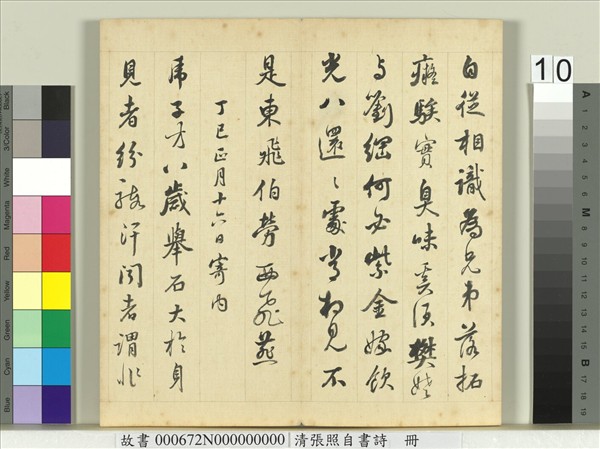 自從相識為兄弟落拓
癡騃實臭味奚須樊姥
与劉綱何必紫金嫗飲
光八還〻處常相見不
是東飛伯勞西飛燕
丁巳正月十六日寄內
虎子方八歲舉石大於身
見者紛駭汗聞者謂非
故書 000672N000000000 清張照自書詩 冊
10
Black
3/Color
White
Magenta
Red
Yellow
Green
Cyan
Blue
A
1
2
3
4
5
6
M
8
9
10
11
12
13
14
15
B
17
18
19